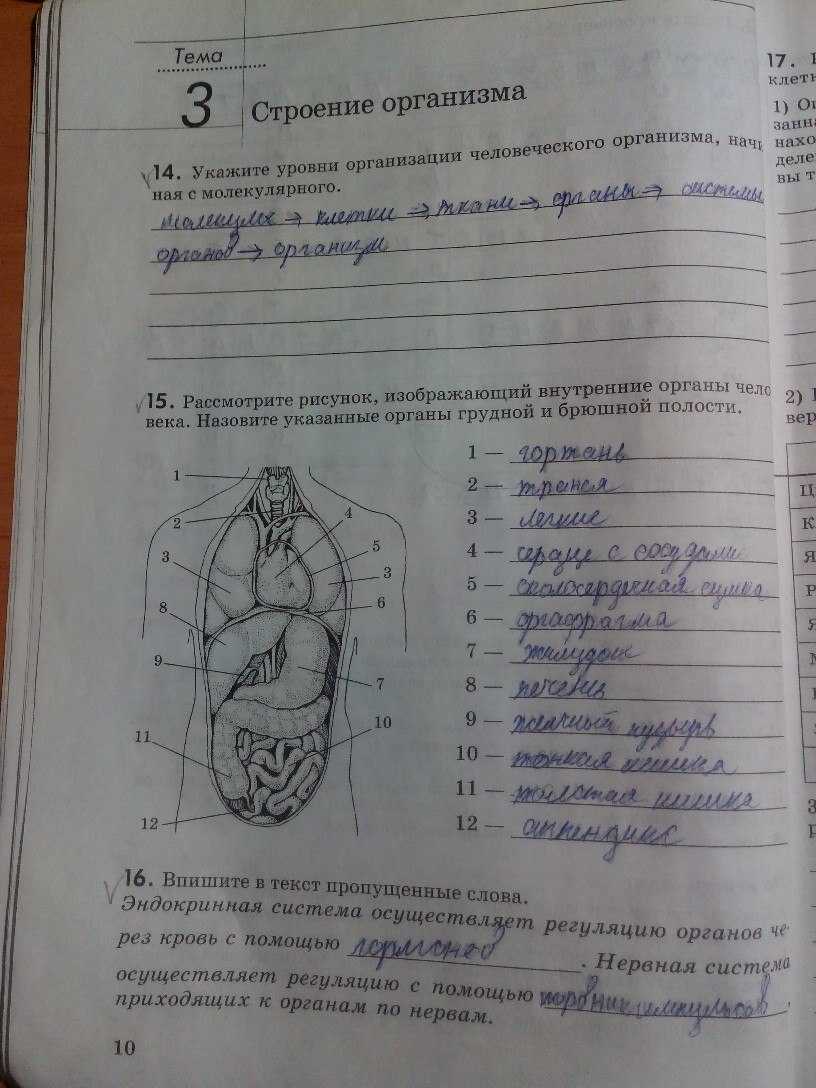 Тема
3 Строение организма
14. Укажите уровни организации человеческого организма, начи
ная с молекулярного.
молекулы → клетки → ткани → органы → системы
органов → организм
15. Рассмотрите рисунок, изображающий внутренние органы чело
века. Назовите указанные органы грудной и брюшной полости.
1 — гортань
2 — трахея
3 — легкие
4 — сердце с сосудами
5 — околосердечная сумка
6 —
7 —
8 — печень
9 — желчный пузырь
10 — тонкая кишка
11 — толстая кишка
12 — аппендикс
1
2
3
4
5
3
6
8
9
7
10
11
12
16. Впишите в текст пропущенные слова.
Эндокринная система осуществляет регуляцию органов че-
рез кровь с помощью гормонов . Нервная система
осуществляет регуляцию с помощью импульсов ,
приходящих к органам по нервам.
10
17.
клетн
1) Оп
занна
нахо
деле
вы т
2)
вер
Ц
К
Я
Р
Я